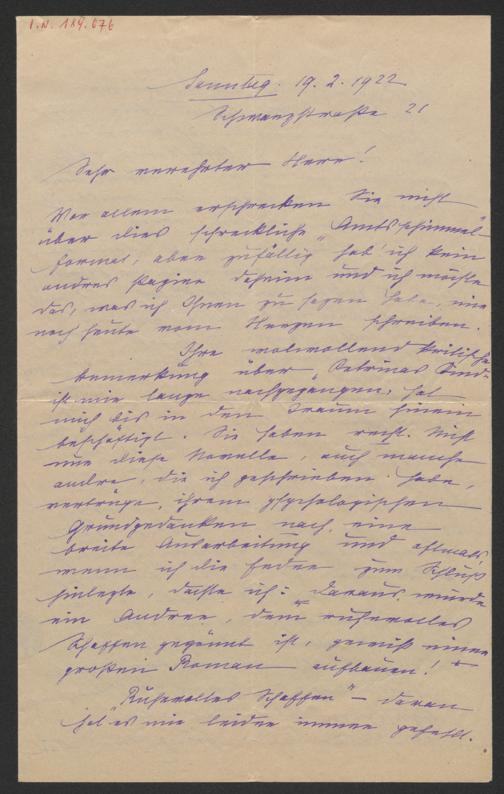 I.N. 189.676
Sonntag. 19.2.1922
Schwarzstraße 21
Sehr verehrter Herr!
Vor allem erschrecken Sie nicht
über dies schreckliche "Amtsschimmel"-
format; aber zufällig hab' ich kein
andres Papier daheim und ich möchte
das, was ich Ihnen zu sagen habe, nur
noch heute vom Herzen schreiben.
Ihre wohlwollend kritische
Bemerkung über "Petrinas Kind"
ist mir lange nachgegangen, hat
mich bis in den Traum hinein
beschäftigt. Sie haben recht. Nicht
nur diese Novelle, auch manche
andre, die ich geschrieben habe,
vertrüge, ihrem psychologischen
Grundgedanken nach, eine
breite Ausarbeitung und oftmals
wenn ich die Feder zum Schluß
hinlegte, dachte ich: "Daraus würde
ein Andrer, dem ruhevolles
Schaffen gegönnt ist, gewiß einen
großen Roman aufbauen!"
"Ruhevolles Schaffen" – daran
hat es mir leider immer gefehlt.